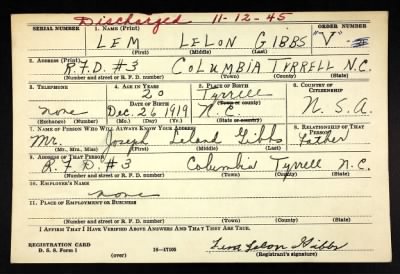 Discharged 11-12-45
SERIAL NUMBER 1. NAME (Print) ORDER NUMBER
LEM LELON GIBBS "V"
(First) (Middle) (Last)
2. ADDRESS (Print)
R.F.D. #3 COLUMBIA TYRRELL N.C.
(Number and street or R. F. D. number) (Town) (County) (State)
3. TELEPHONE 4. AGE IN YEARS 5. PLACE OF BIRTH 6. COUNTRY OF CITIZENSHIP
20 Tyrrell
none DATE OF BIRTH (Town or county)
Dec. 26 1919 N.C. U.S.A.
(Exchange) (Number) (Mo.) (Day) (Yr.) (State or country)
7. NAME OF PERSON WHO WILL ALWAYS KNOW YOUR ADDRESS 8. RELATIONSHIP OF THAT PERSON
Mr. Joseph Leland Gibbs Father
(Mr., Mrs., Miss) (First) (Middle) (Last)
9. ADDRESS OF THAT PERSON
R.F.D. #3 Columbia Tyrrell N.C.
(Number and street or R. F. D. number) (Town) (County) (State)
10. EMPLOYER'S NAME
none
11. PLACE OF EMPLOYMENT OR BUSINESS
(Number and street or R. F. D. number) (Town) (County) (State)
I AFFIRM THAT I HAVE VERIFIED ABOVE ANSWERS AND THAT THEY ARE TRUE.
REGISTRATION CARD
D. S. S. Form 1 16-17105 Lem Lelon Gibbs
(Registrant's signature)